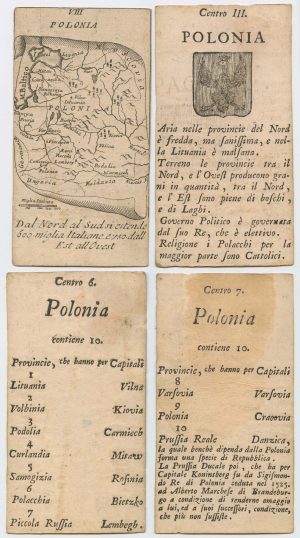 VIII
POLONIA
POLONI
Ungaria
Moldavia
Miglia Italiane
Dal Nord al Sud si estende
600 miglia Italiane, e 750 dall
Est all Ovest
Centro III.
POLONIA
Aria nelle provincie del Nord
è fredda, ma sanissima, e nel-
la Lituania è malsana.
Terreno le provincie tra il
Nord, e l'Ovest producono gra-
ni in quantità, tra il Nord,
e l'Est sono piene di boschi,
e di Laghi.
Governo Politico è governata
dal suo Re, che è elettivo.
Religione i Polacchi per la
maggior parte sono Cattolici.
Centro 6.
Polonia
contiene 10.
Provincie, che hanno per Capitali
1
Lituania Vilna
2
Volhinia Kiovia
3
Podolia Carmiech
4
Curlandia Mitaw
5
Samogizia Rosinia
6
Polacchia Bietzko
7
Piccola Russia Lembegh.
Centro 7.
Polonia
contiene 10.
Provincie, che hanno per Capitali
8
Varsovia Varsovia
9
Polonia Cracovia
10
Prussia Reale Danzica,
la quale benchè dipenda dalla Polonia
forma una specie di Repubblica.
La Prussia Ducale poi, che ha per
Capitale Koninsberg fu da Sigismon-
do Re di Polonia ceduta nel 1525.
ad Alberto Marchese di Brandebur-
go a condizione di renderne omaggio
a lui, ed a suoi successori, condizione,
che più non sussiste.